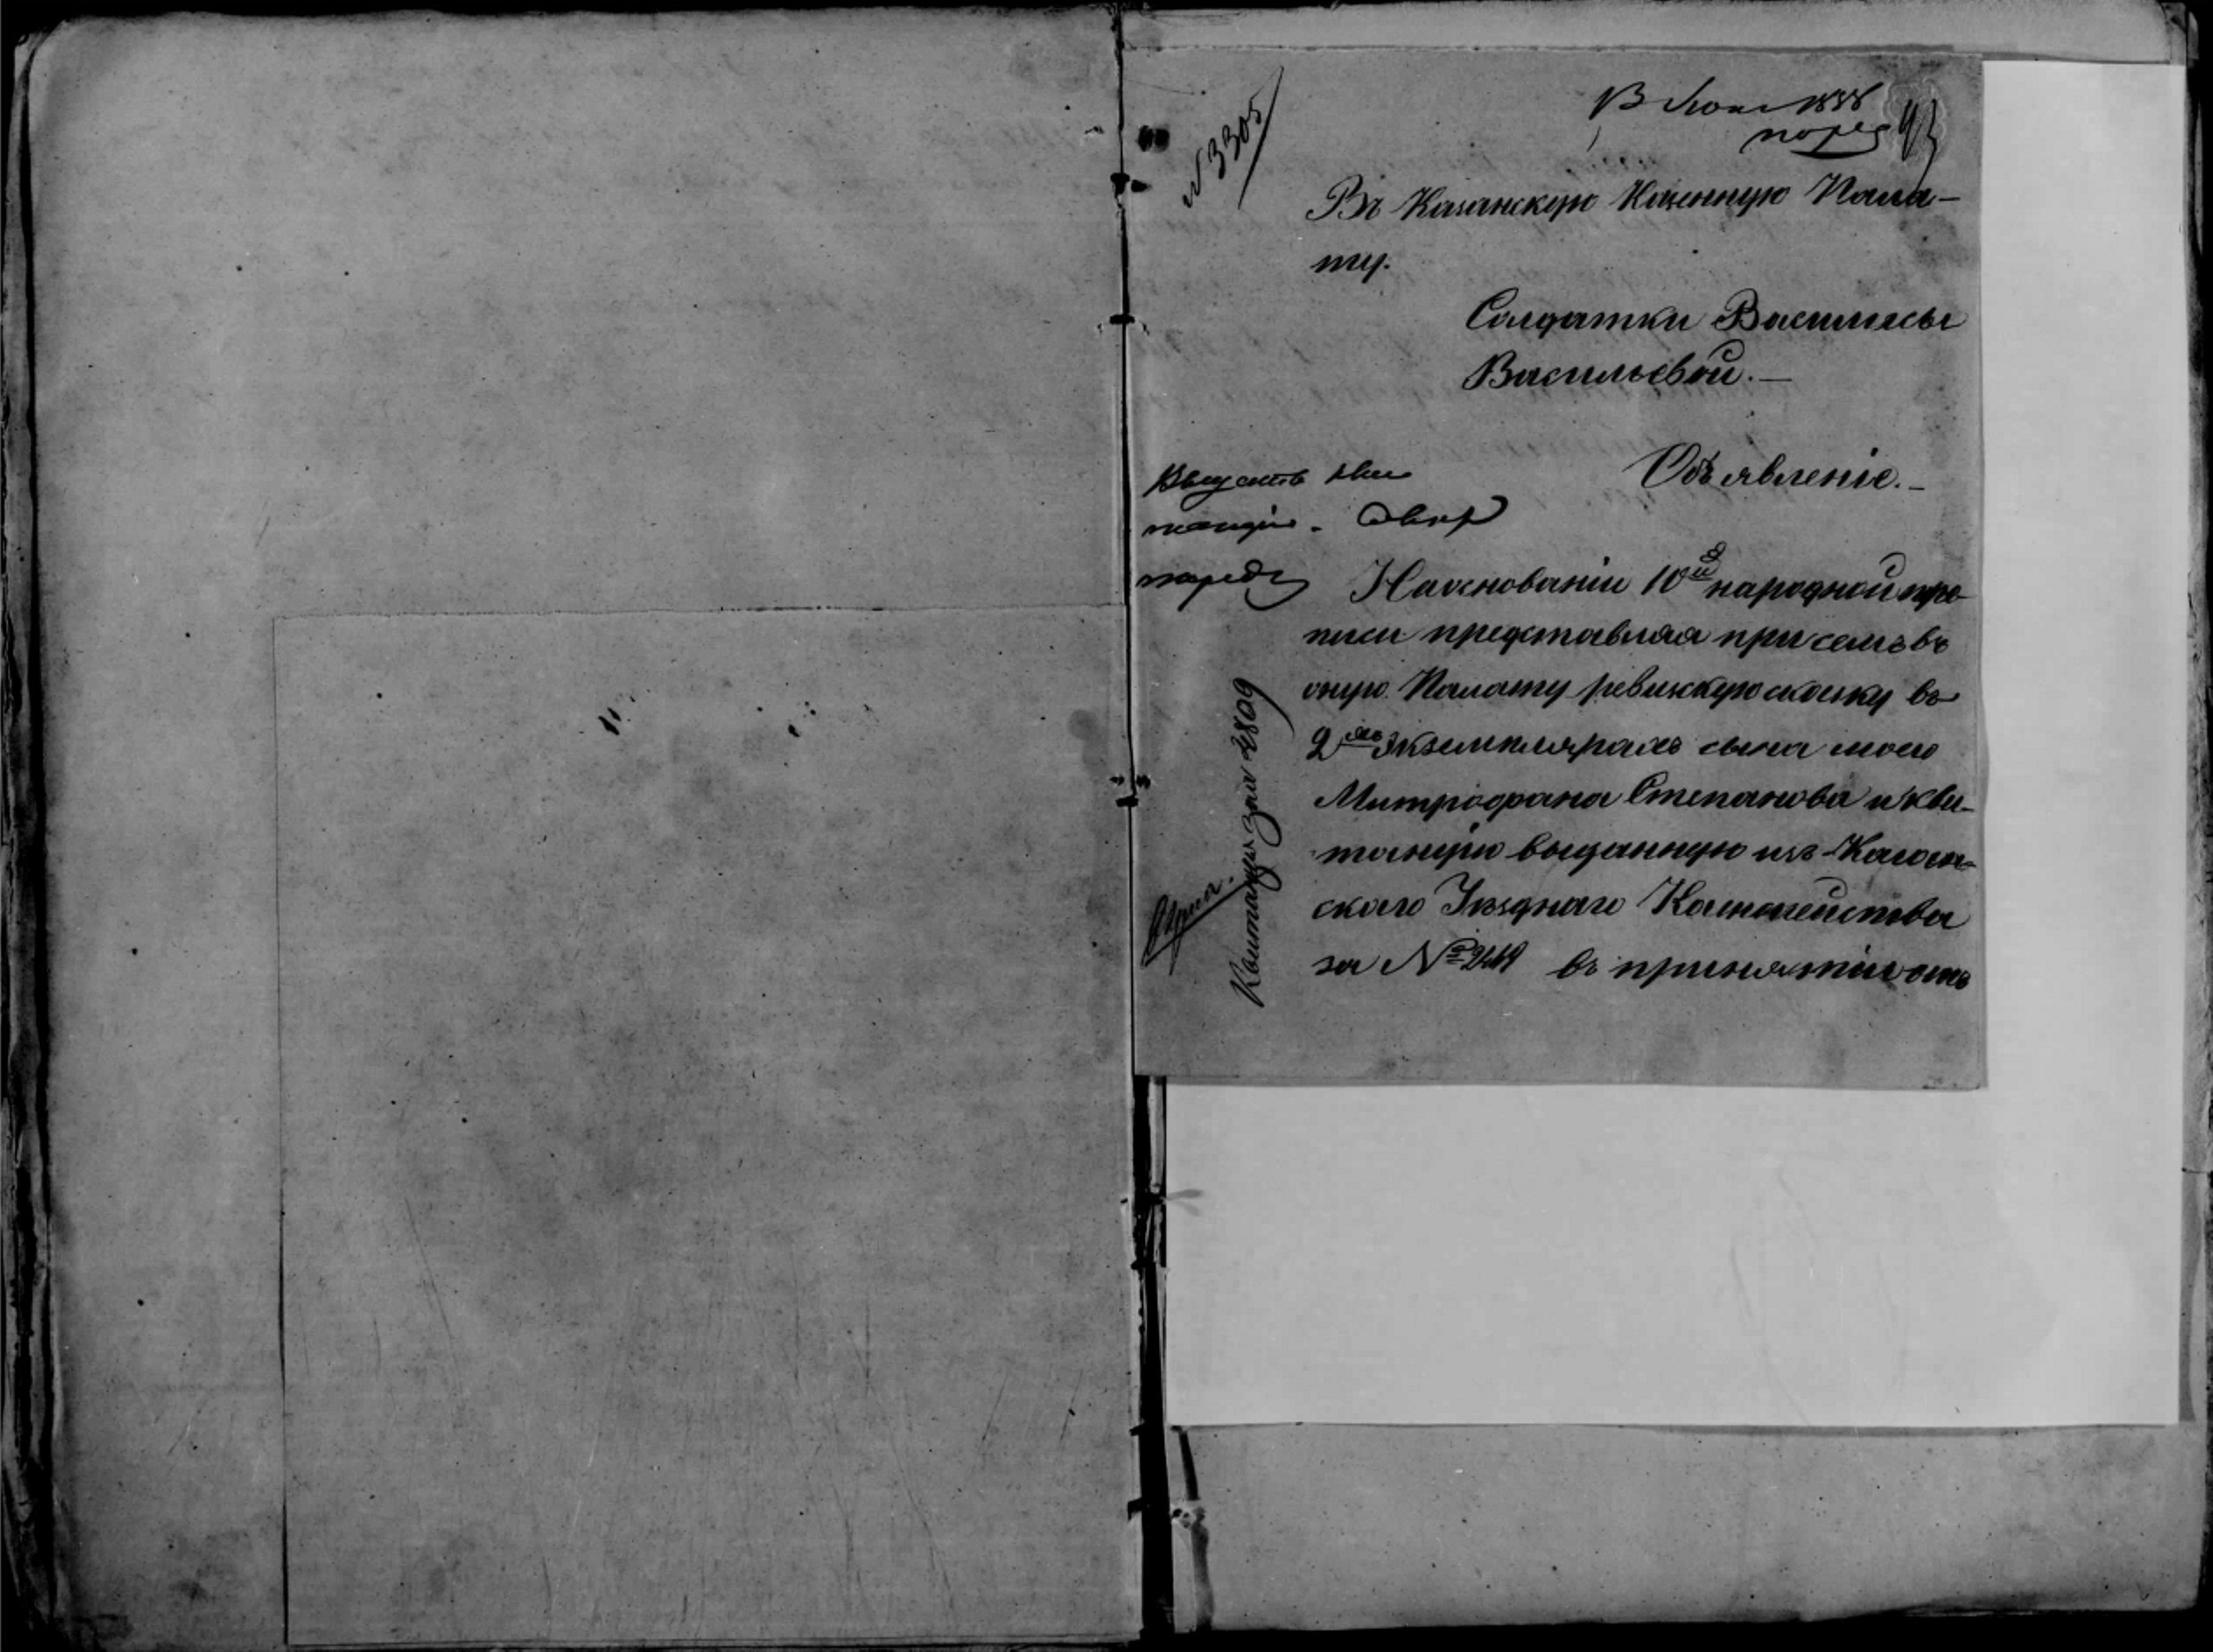 № 3305
13 Июня 1858
93
Въ Казанскую Казенную Пала-
ту.
Солдатки Василисы
Васильевой.—
Объявленіе.—
Выдать кви
танцію.
На основаніи 10й народной пере-
писи представляя при семъ въ
оную Палату ревижскую скаску въ
2хъ экземплярахъ сына моего
Митрофана Степанова и кви-
танцію выданную изъ Казан-
скаго Уѣзднаго Казначейства
за № 2419 въ принятіи отъ
Квитанція за № 2809